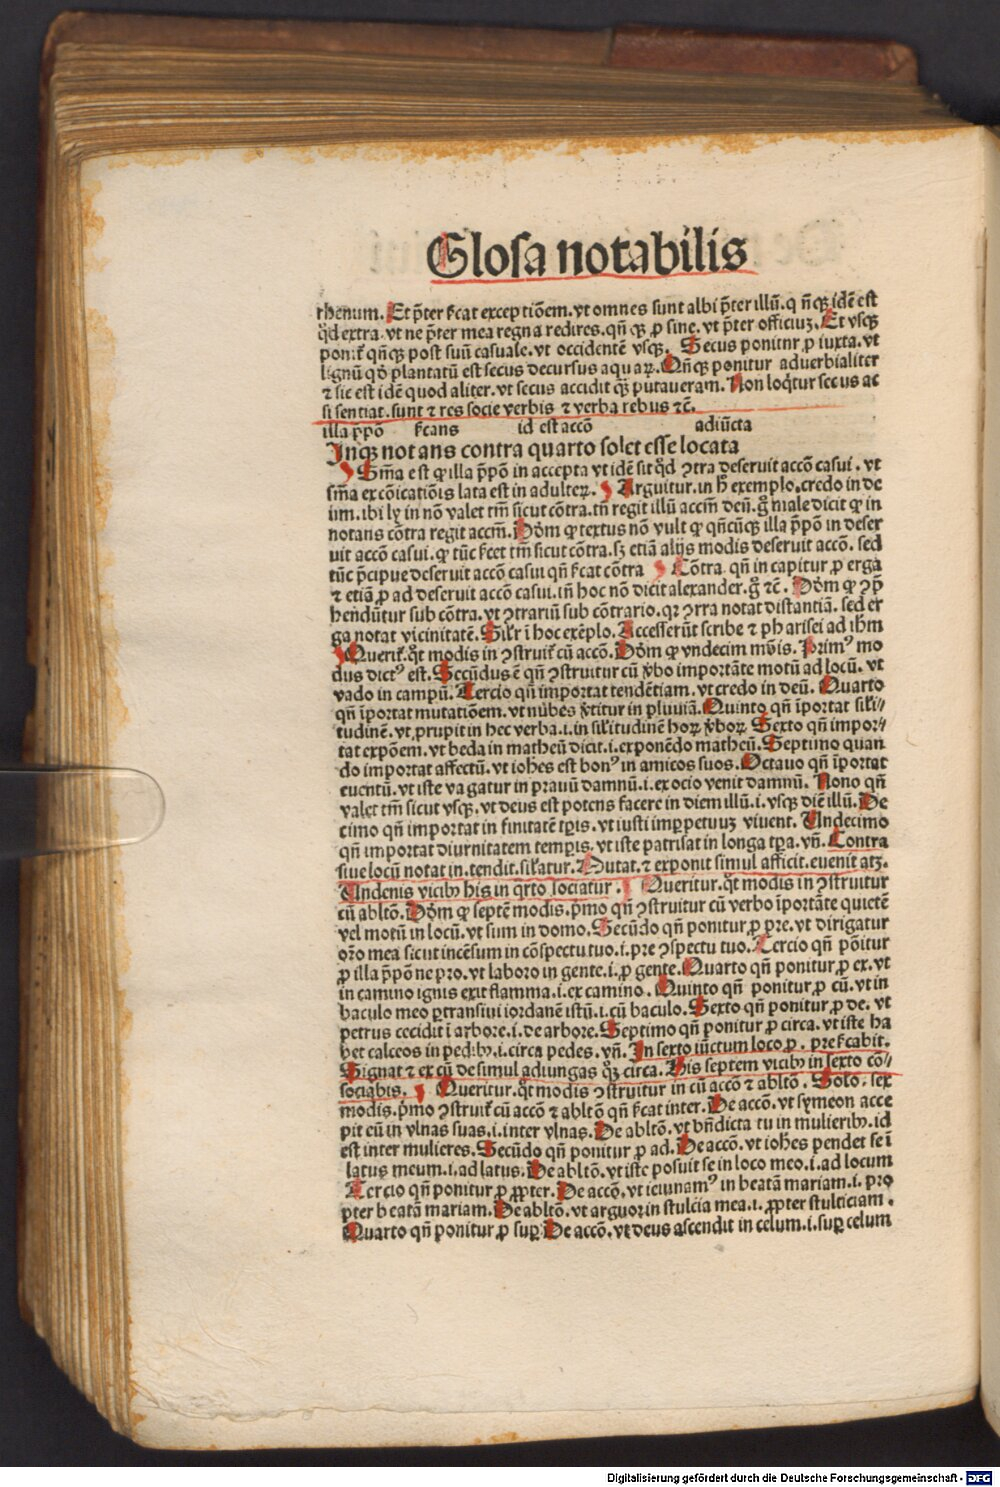 Glosa notabilis
rhenum. Et p̄ter ſcat exceptiōem. vt omnes sunt albi p̄ter illū. q̄ n̄qꝫ idē est
qd̄ extra. vt ne p̄ter mea regna redires. qn̄qꝫ ꝓ sine. vt p̄ter officiuꝫ. Et vsqꝫ
ponit̄ qn̄qꝫ post suū casuale. vt occidentē vsqꝫ. Secus ponitnr ꝓ iuxta. vt
lignū qd̄ plantatū est secus decursus aquaꝝ. Qn̄qꝫ ponitur aduerbialiter
⁊ sic est idē quod aliter. vt secus accidit qꝫ putaueram. Non loq̄tur secus ac
si sentiat. sunt ⁊ res socie verbis ⁊ verba rebus ⁊c̄.
illa p̄pō ſcans id est accō adiūcta
Inqꝫ notans contra quarto solet esse locata
Sm̄a est ꝙ illa p̄pō in accepta vt idē sit qd̄ ↄtra deseruit accō casui. vt
sm̄a excōicatiōis lata est in adulteꝝ. Arguitur. in h̄ exemplo. credo in de
um. ibi lꝫ in nō valet tm̄ sicut cōtra. tn̄ regit illū accm̄ deū. g̊ male dicit ꝙ in
notans cōtra regit accm̄. Dōm ꝙ textus nō vult ꝙ qn̄cūqꝫ illa p̄pō in deser
uit accō casui. ꝙ tūc ſcet tm̄ sicut cōtra. sꝫ etiā alijs modis deseruit accō. sed
tūc p̄cipue deseruit accō casui qn̄ ſcat cōtra Cōtra. qn̄ in capitur ꝓ erga
⁊ etiā ꝓ ad deseruit accō casui. in̄ hoc nō dicit alexander. g̊ ⁊c̄. Dōm ꝙ ↄp̄
hendūtur sub cōtra. vt ↄtrariū sub cōtrario. qꝛ ↄrra notat distantiā. sed er
ga notat vicinitatē. Silr̄ ī hoc exēplo. Accesserūt scribe ⁊ pharisei ad ihm̄
Querit̄. qt̊ modis in ↄstruit̄ cū accō. Dōm ꝙ vndecim mōis. Primꝰ mo
dus dictꝰ est. Secūdus ē qn̄ ↄstruitur cū v̄bo importāte motū ad locū. vt
vado in campū. Tercio qn̄ importat tendētiam. vt credo in deū. Quarto
qn̄ īportat mutatiōem. vt nubes v̄titur in pluuiā. Quinto qn̄ īportat sil'i⸗
tudinē. vt prupit in hec verba. i. in sil'itudinē hoꝝ v̄boꝝ. Sexto qn̄ impor⸗
tat expōem. vt beda in matheū dicit. i. exponēdo matheū. Septimo quan
do importat affectū. vt iohēs est bonꝰ in amicos suos. Octauo qn̄ īportat
euentū. vt iste vagatur in prauū damnū. i. ex ocio venit damnū. Nono qn̄
valet tm̄ sicut vsqꝫ. vt deus est potens facere in diem illū. i. vsqꝫ diē illū. De
cimo qn̄ importat in finitatē tꝑis. vt iusti imꝑpetuuꝫ viuent. Undecimo
qn̄ importat diurnitatem temꝑis. vt iste patrisat in longa tꝑa. vn̄. Contra
siue locū notat in. tendit. sil'atur. Mutat. ⁊ exponit simul afficit. euenit atqꝫ.
Undenis vicibꝰ his in qrto sociatur. Queritur. qt̊ modis in ↄstruitur
cū abltō. Dōm ꝙ septē modis. p̄mo qn̄ ↄstruitur cū verbo īportāte quietē
vel motū in locū. vt sum in domo. Secūdo qn̄ ponitur ꝓ pre. vt dirigatur
orō mea sicut incēsum in cōspectu tuo. i. pre ↄspectu tuo. Tercio qn̄ pōitur
ꝓ illa p̄pō ne pro. vt laboro in gente. i. ꝓ gente. Quarto qn̄ ponitur ꝓ ex. vt
in camino ignis exit flamma. i. ex camino. Quinto qn̄ ponitur ꝓ cū. vt in
baculo meo ꝑtransiui iordanē istū. i. cū baculo. Sexto qn̄ ponitur ꝓ de. vt
petrus cecidit ī arbore. i. de arbore. Septimo qn̄ ponitur ꝓ circa. vt iste ha
bet calceos in pedibꝰ. i. circa pedes. vn̄. In sexto iūctum loco ꝓ. pre ſcabit.
Signat ⁊ ex cū de simul adiungas qꝫ circa. His septem vicibꝰ in sexto cō⸗
sociabis. Queritur. qt̊ modis ↄstruitur in cū accō ⁊ abltō. Solo. sex
modis. p̄mo ↄstruit̄ cū accō ⁊ abltō qn̄ ſcat inter. De accō. vt symeon acce
pit eū in vlnas suas. i. inter vlnas. De abltō. vt bn̄dicta tu in mulieribꝰ. id
est inter mulieres. Secūdo qn̄ ponitur ꝓ ad. De accō. vt iohēs pendet se ī
latus meum. i. ad latus. De abltō. vt iste posuit se in loco meo. i. ad locum
Tercio qn̄ ponitur ꝓ ꝓpter. De accō. vt ieiunamꝰ in beatā mariam. i. pro
pter beatā mariam. De abltō. vt arguor in stulcia mea. i. ꝓpter stulticiam.
Quarto qn̄ ponitur ꝓ suꝑ. De accō. vt deus ascendit in celum. i. suꝑ celum
Digitalisierung gefördert durch die Deutsche Forschungsgemeinschaft - DFG